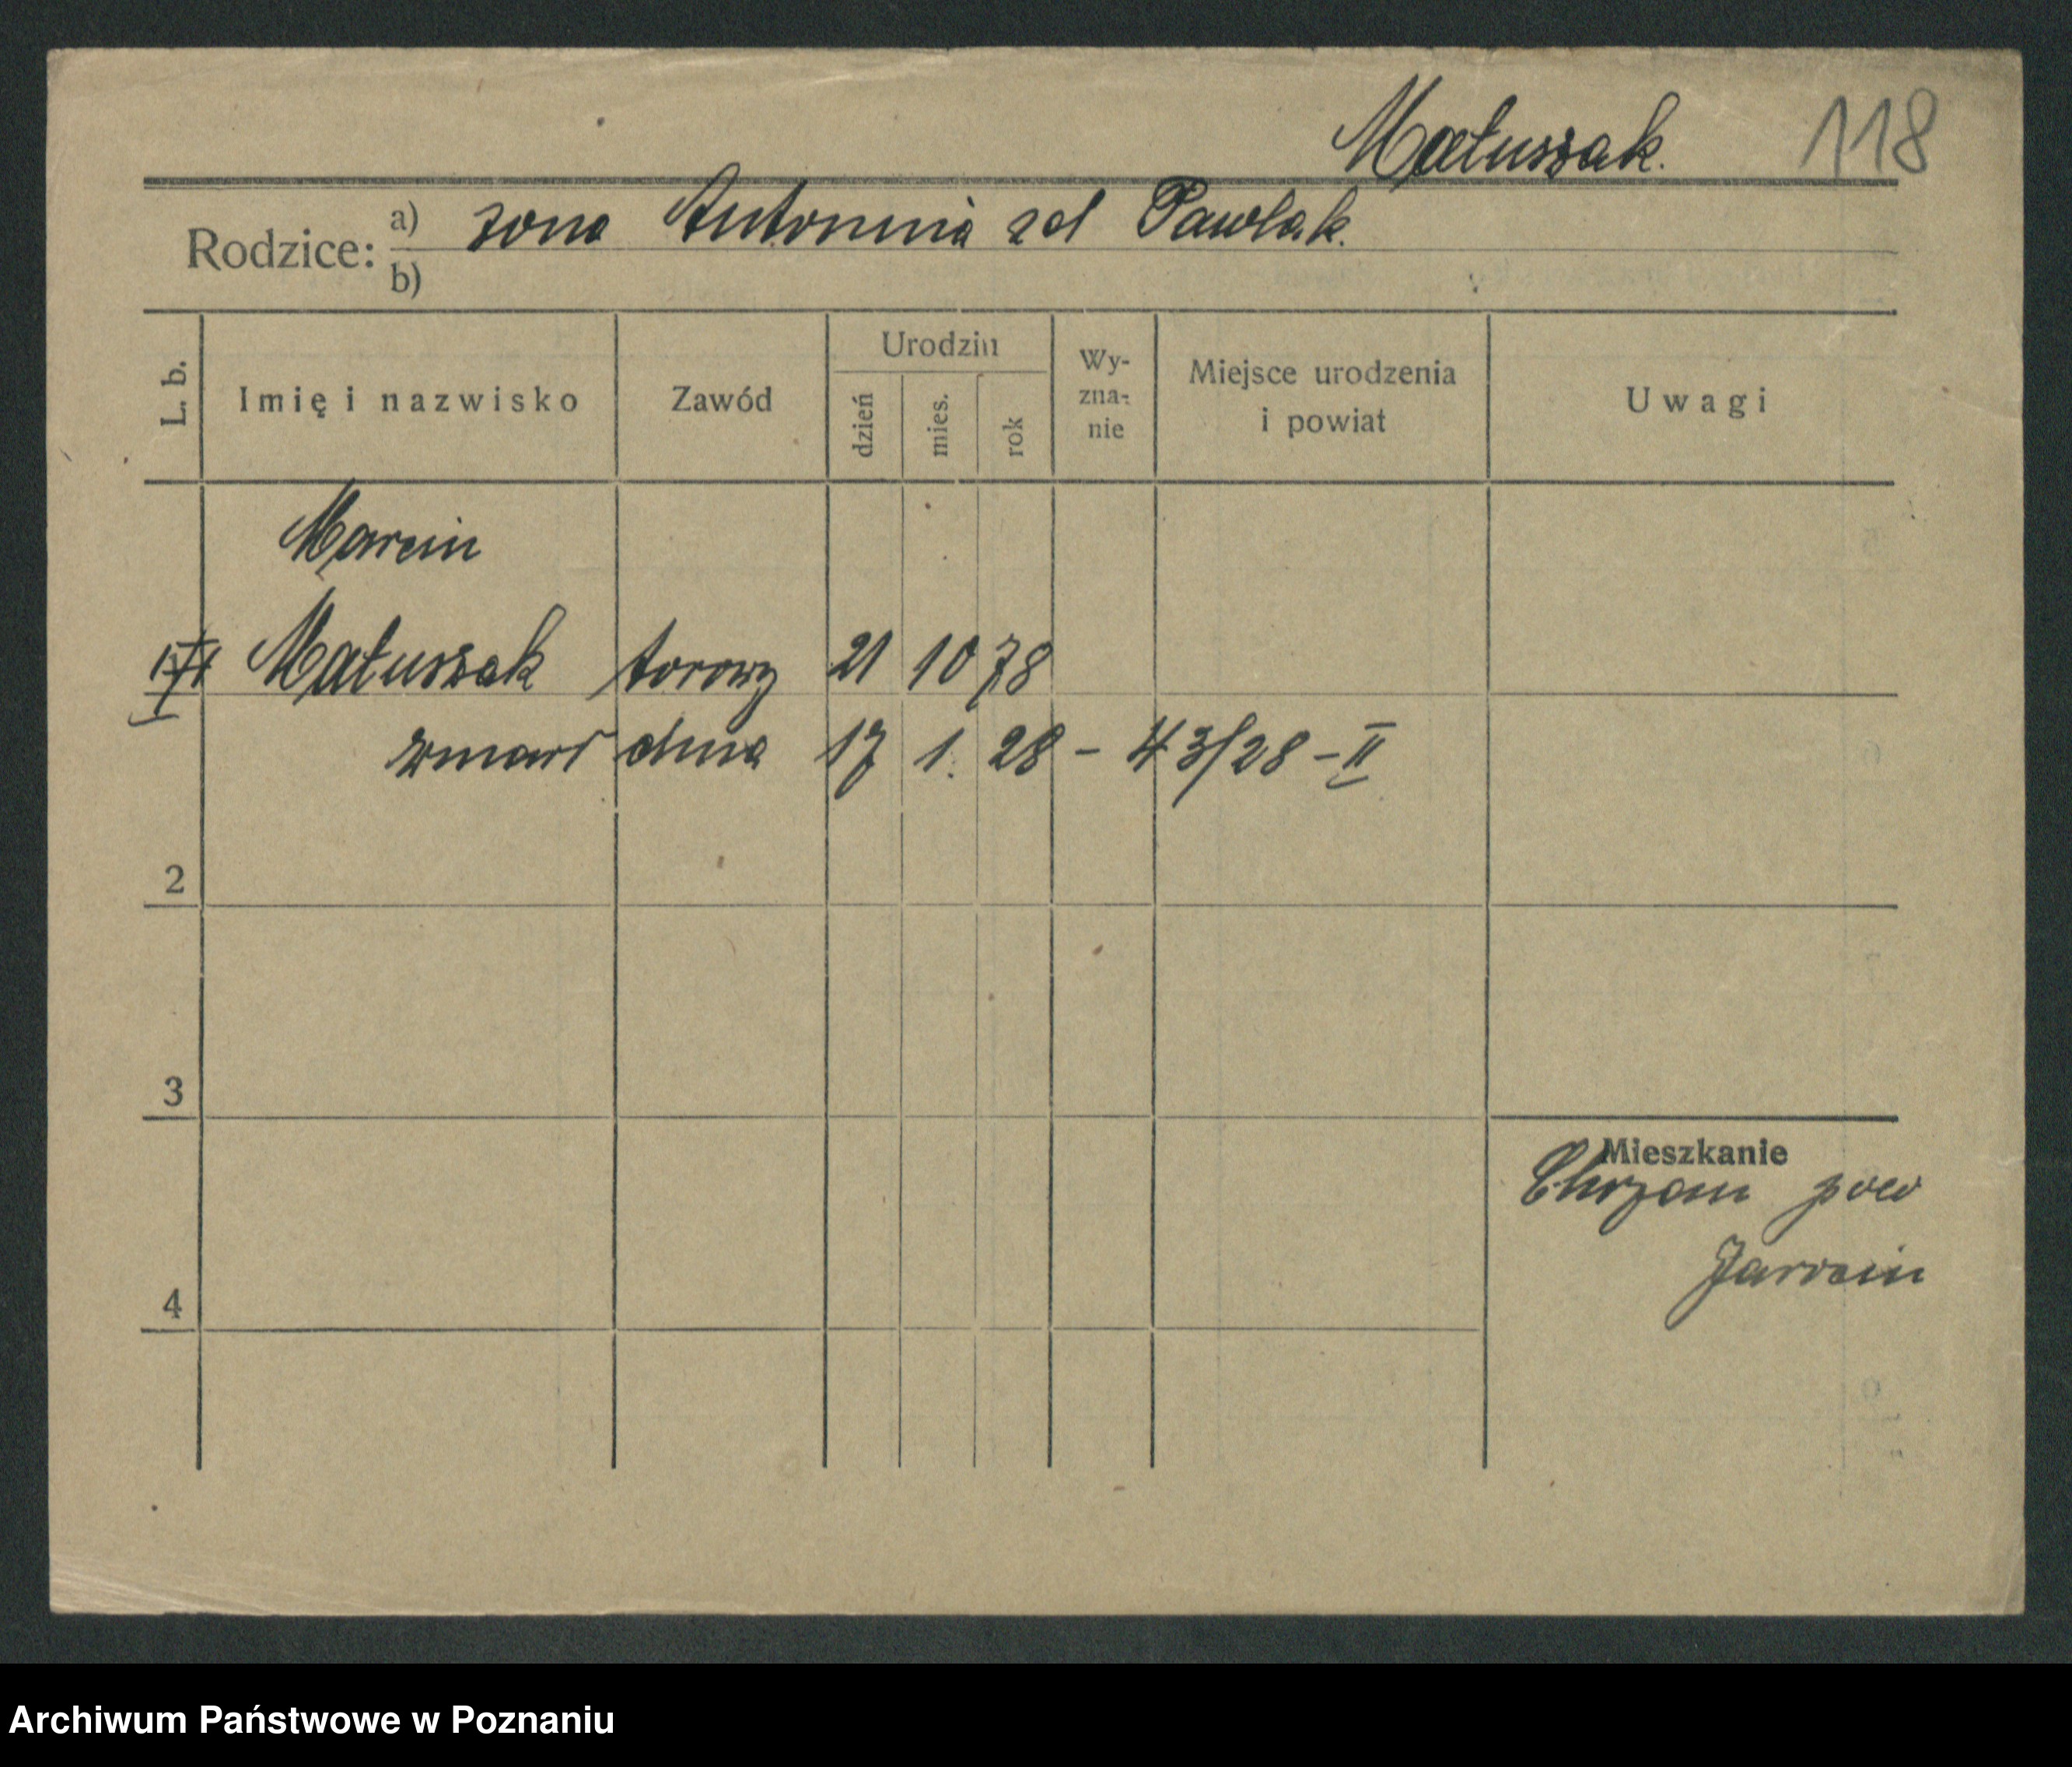 Matuszak. 118
Rodzice: a) żona Antonina zd Pawlak.
b)
L. b. Imię i nazwisko Zawód Urodzin dzień mies. rok Wy-zna-nie Miejsce urodzenia i powiat Uwagi
Marcin
Matuszak torowy 21 10 78
zmarł dnia 17 1. 28 – 43/28 – II
2
3
Mieszkanie
Chrzan pow
Jarocin
4
Archiwum Państwowe w Poznaniu